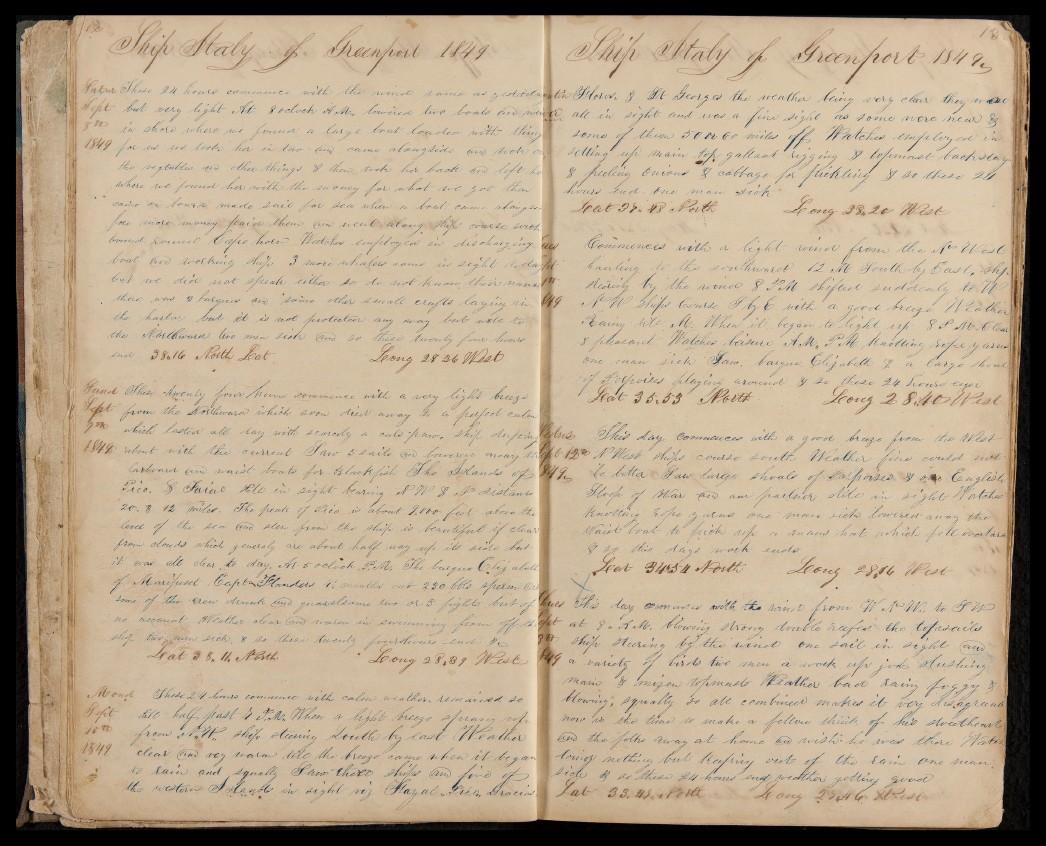 Ship Italy of Greenport 1849
These 24 hours commence with the wind same as yesterday
Sept but very light At 8 oclock A.M. lowered two boats and went
8th in shore where we found a large boat loaden with things
1849 for us we took her in tow and came alongside and took on
the vegtables and other things & then took her back and left her
where we found her with the money for what we got then
made sail for sea when a boat came alongside
for more money paid them and went along ship course
bound round Cape horn Watches employed in discharging
boat and working ship 3 more whalers came in sight to day
but we did not speak either so do not know their names
there was 2 barques and some other small crafts laying in
the harbor but it is not protection any way but
the Northward two men sick and so these twenty four hours
end 38.16 North Lat Long 28 26 West
Sund These twenty four hours commence with a very light breeze
Sept from the Northward which soon died away to a perfect calm
9th which lasted all day with scarcely a cats paw. ship
1849 about with the current Saw 5 sails and lowered away the
Larboard and waist boats for Blackfish The Islands of
Pico & Faial still in sight bearing N W & N distance
20 & 12 miles. The peak of Pico is about feet above the
level of the sea and seen from the ship is beautiful if clear
from clouds which generaly are about half way up its sides but
it was all clear to day. At 5 oclock P.M. The barque Elizabeth
of Capt Flanders months out 220 bbls sperm
some of the crew drunk and quarrelsome two or 3 fights but of
no account Weather clear and warm in swimming from off the
ship two men sick & so these twenty four hours end
Lat 38.11 North Long 28.39 West
Mond These 24 hours commence with calm weather, remained so
Sept till half past 4 P.M. When a light breeze sprang up
10th from N.W. ship steering South by East Weather
1849 clear and very warm till the breeze came when it began
to rain and squally Saw three ships and five of
the western Islands in sight viz Fayal Pico Gracios
Ship Italy of Greenport 1849
Flores. & St Georges the weather being very clear they were
all in sight and was a fine sight as some were near &
some of them 50 or 60 miles off Watches employed in
setting up main top gallant rigging & topmast backstay
& peeling onions & cabbage for pickling & so these 24
hours end one man sick
Lat 37.48 North Long 28.20 West
Commences with a light wind from the N West
hauling to the southward 12 M South by East. ship
steering by the wind 8 P.M shifted suddenly to W
1849 N W Ships Course S by E with a good breeze Weather
Rainy till M. When it began to light up 8 P.M Clear
& pleasant Watches leisure A.M. P.M. knotting rope yarns
one man sick Saw barque Elizabeth & a large shoal
of Porpoises playing around & so these 24 hours expire
Lat 35.53 North Long 28.40 West
Sept 12th This day commences with a good breeze from the West
N West ships course south Weather fine could not
1849 be better Saw large shoals of Porpoises & an English
Sloop of War and our partner still in sight Watches
knotting rope yarns one man sick lowered away the
waist boat to pick up a mans hat which fell overboard
& so this days work ends
Lat 34.54 North Long 28.16 West
This day commences with the wind from W N W. to S W
at 8 A.M. blowing strong double reefed the topsails
ship steering by the wind one sail in sight and
1849 a variety of birds two men a work up job slushing
main & mizen topmasts Weather bad rainy foggy &
blowing, squally so all combined makes it very disagreeable
now is the time to make a fellow think of his sweethearts
and the folks away at home and wish he was there Watches
doing nothing but keeping out of the rain one man
sick & so these 24 hours end weather getting good
Lat 33.42 North Long West